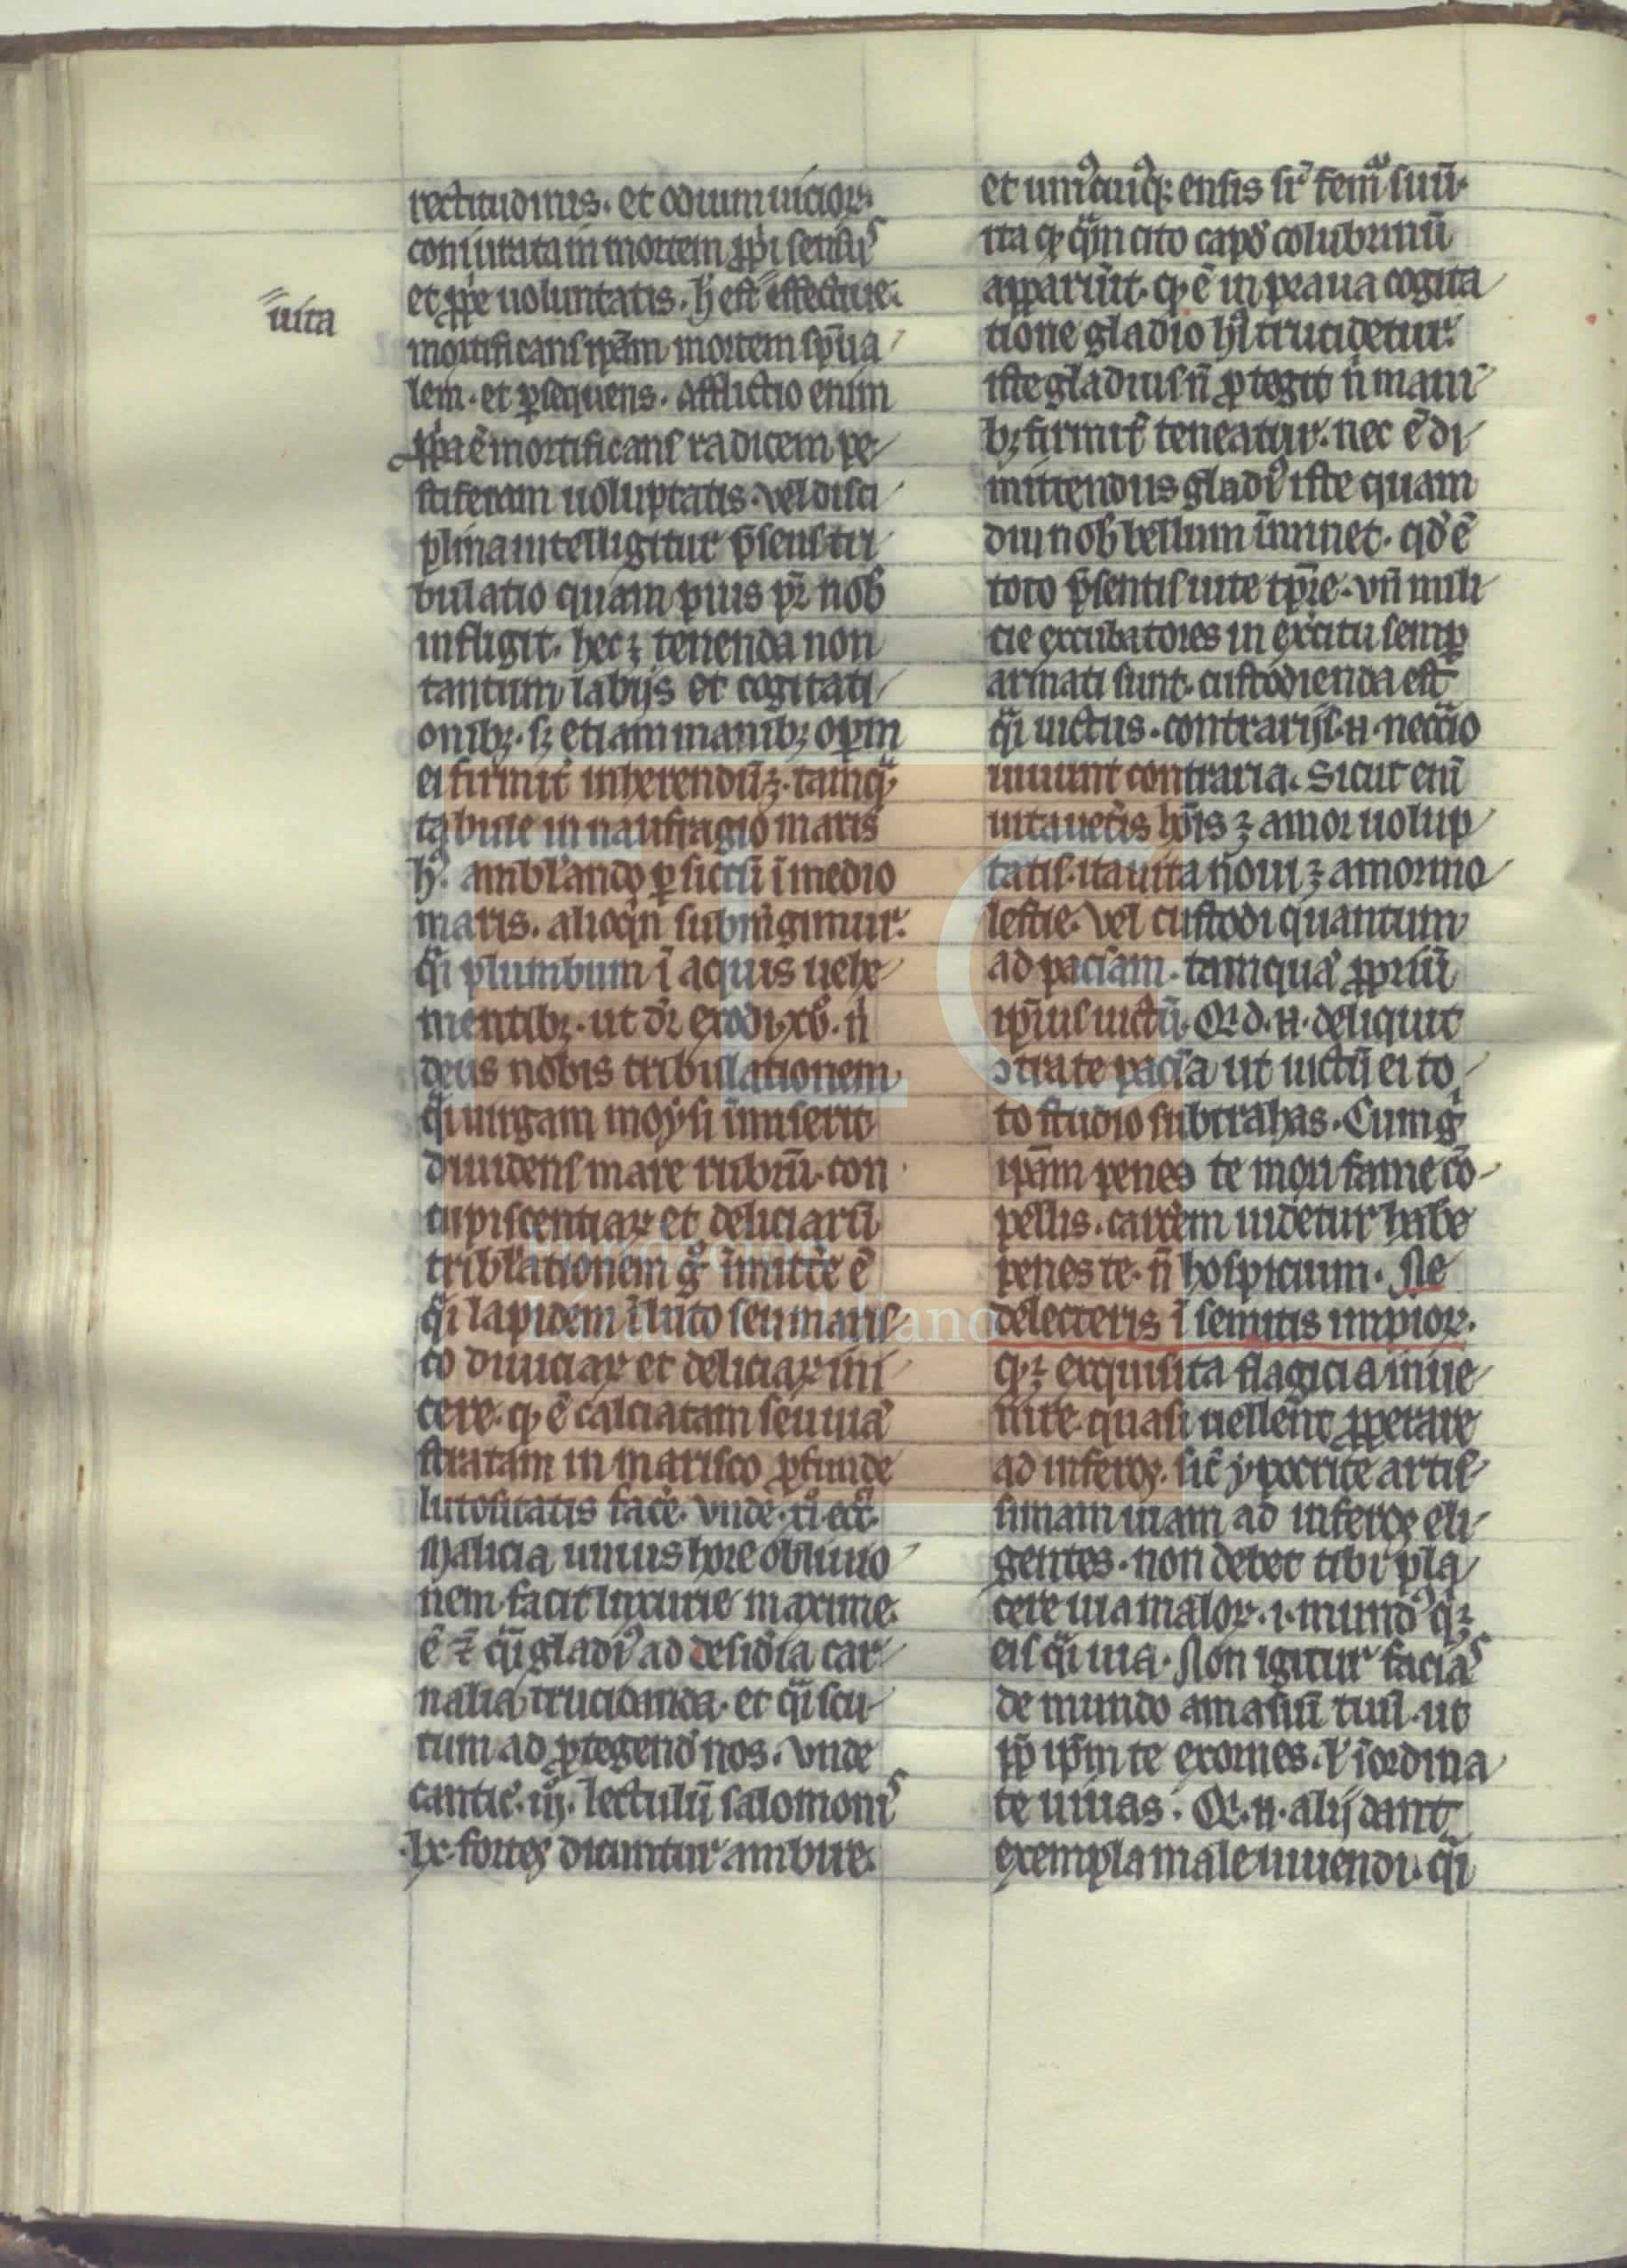 uita
rectitudinis. et odium uicioꝝ.
coniurata in mortem ꝓpͥ sensuˢ
et ꝓpͥe uoluntatis. h̄ est effectiue.
mortificans ip̄am mortem sp̄ua
lem. et ꝑsequens. Afflictio enim
mortificans radicem pe
stiferam uoluptatis. vel disci
plina intelligitur p̄sens tri
bulatio quam pius pr̄ nob̄
infligit. hec ꝫ tenenda non
tantum labijs et cogitati
onibꝫ. sꝫ etiam manibꝫ oꝑum
ei firmit̄ inherendū ꝫ. tamqᷓ
tabule in naufragio maris
hꝰ. ambl̓ando ꝑ siccū ī medio
maris. alioqͥn submͥgimur.
qͣi plumbum ī aquis uehe
mentibꝫ. ut dr̄ exodi. xv. n̄
deus nobis tribulationem
qͣi uirgam moysi inmiserit
diuidens mare rubrū. con
cupiscentiaꝝ et deliciarū
tribl̓ationem gͦ īmitte̓ ē
qͣi lapidem ī luto seu maris
co diuiciaꝝ et deliciaꝝ ini
cere. qͩ ē calciatam seu uiā
stratam in marisco ꝓfunde
lutositatis face̓. vnde. xͥ. ecc̄.
Malicia unius hore obliuio
nem facit luxurie maxime.
ē ⁊ qͣi gladiꝰ ad desideͥa car
nalia trucidanda. et qͣi scu
tum ad ꝓtegendͦ nos. vnde
cantic̄. iij. lectulū salomoniˢ
.lx. fortes dicuntur ambire.
et uniꝰcuiꝰqꝫ ensis sr̄ femᷓ suū.
ita qͩ qͣm cito capd̓ colubrinū
apparuͥt. qͩ ē in praua cogita
tione gladio hͦ trucidetur.
iste gladius n̄ ꝓtegit n̄ mani
bꝫ firmit̄ teneatur. nec ē di
mittendus gladiꝰ iste quam
diu nob̄ bellum īminet. qd̓ ē
toto p̄sentis uite tp̄re. vn̄ mili
cie excubatores in exc̓itu semꝑ
armati sunt. custodienda est
qͣi uictus. contrarijs. n. nccͣio
uiuunt contraria. Sicut enī
uita uet̓is hoīs ꝫ amor uolup
tatis. ita uita noui ꝫ amor mo
lestie. vel custodi quantum
ad pacīam. tamquā ꝓpriū
ip̄ius uictū. Qͥd. n. deliquit
ↄtra te pacīa ut uictū ei to
to studio subtrahas. Cum gͦ
ip̄am penes te mori fame cō
pellis. carcerem uidetur habe̓
penes te. n̄ hospicium. Ne
delecteris ī semitis impioꝝ.
qꝫ exquisita flagicia inue
nire. quasi uellent ꝓperare
ad inferos. sic̄ ypocrite artis
simam uiam ad inferos eli
gentes. non debet tibi pla
cere uia maloꝝ. i. mundꝰ qꝫ
eis qͣi uia. Non igitur faciāˢ
de mundo amasiū tuū. ut
ꝓp̄ ip̄m te exornes. vͥ īordina
te uiuas. Qͥ. n. alij dant
exempla male uiuendi. qͣi